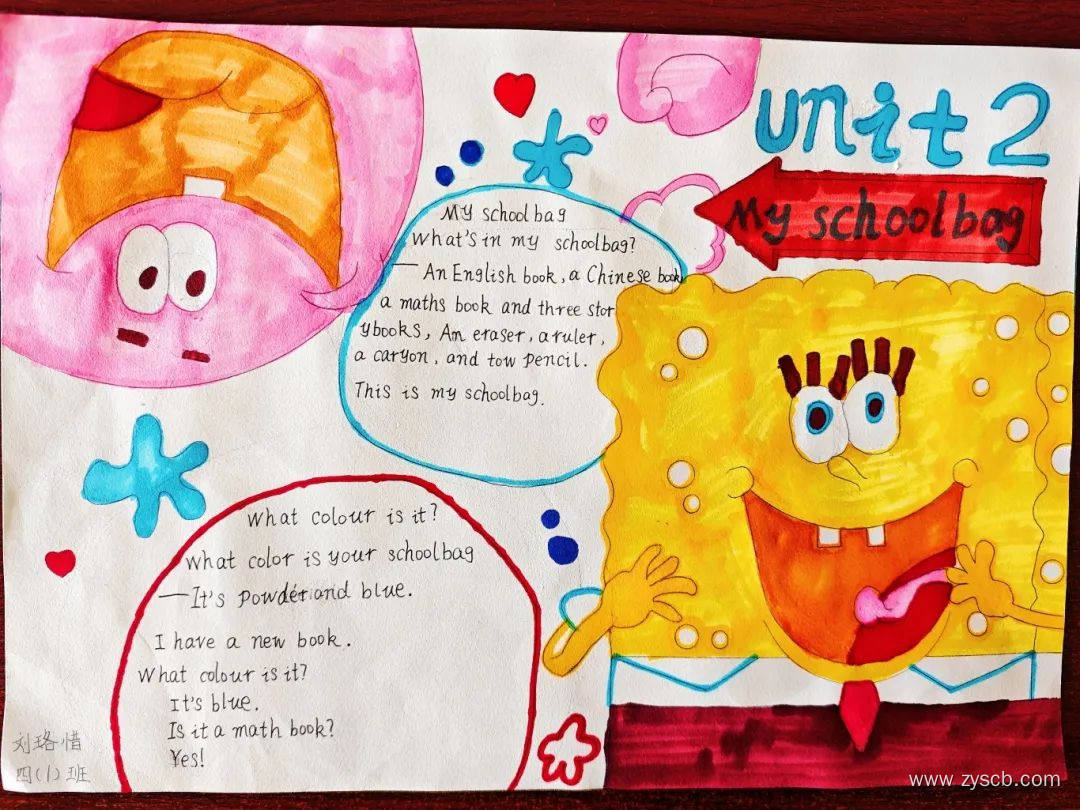 unit 2
My schoolbag
My schoolbag
What's in my schoolbag?
— An English book, a Chinese book
a maths book and three stor
ybooks, An eraser, a ruler,
a caryon, and tow pencil.
This is my schoolbag.
What colour is it?
What color is your schoolbag
— It's powder and blue.
I have a new book.
What colour is it?
It's blue.
Is it a math book?
Yes!
刘珞惜
四(1)班
www.zyscb.com